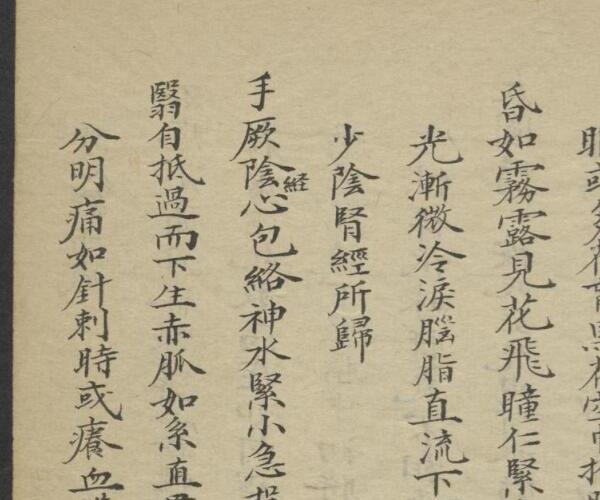 昏如霧露見花飛瞳仁緊
光漸微冷淚腦脂直流下
少陰腎經所歸
手厥陰経心包絡神水緊小急
翳自抵過而下生赤脈如糸直
分明痛如針刺時或癢血